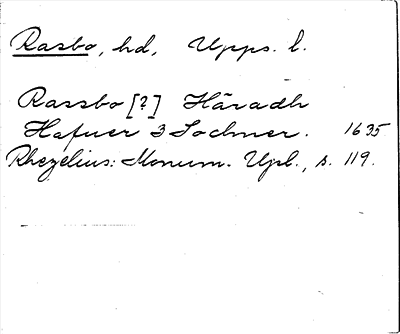 Rasbo, hd, Upps. l.
Rassbo [?] Häradh
Hafuer 3 Sochner. 1635
Rhezelius: Monum. Upl., s. 119.